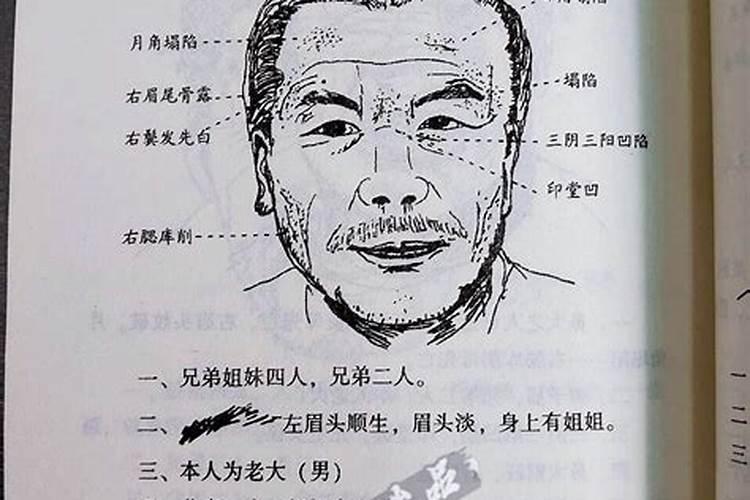 月角塌陷
塌陷
右眉尾骨露
右鬓发先白
三阴三阳凹陷
印堂凹
右腮库削
一、兄弟姐妹四人，兄弟二人。
二、左眉头顺生，眉头淡，身上有姐姐。
三、本人为老大（男）